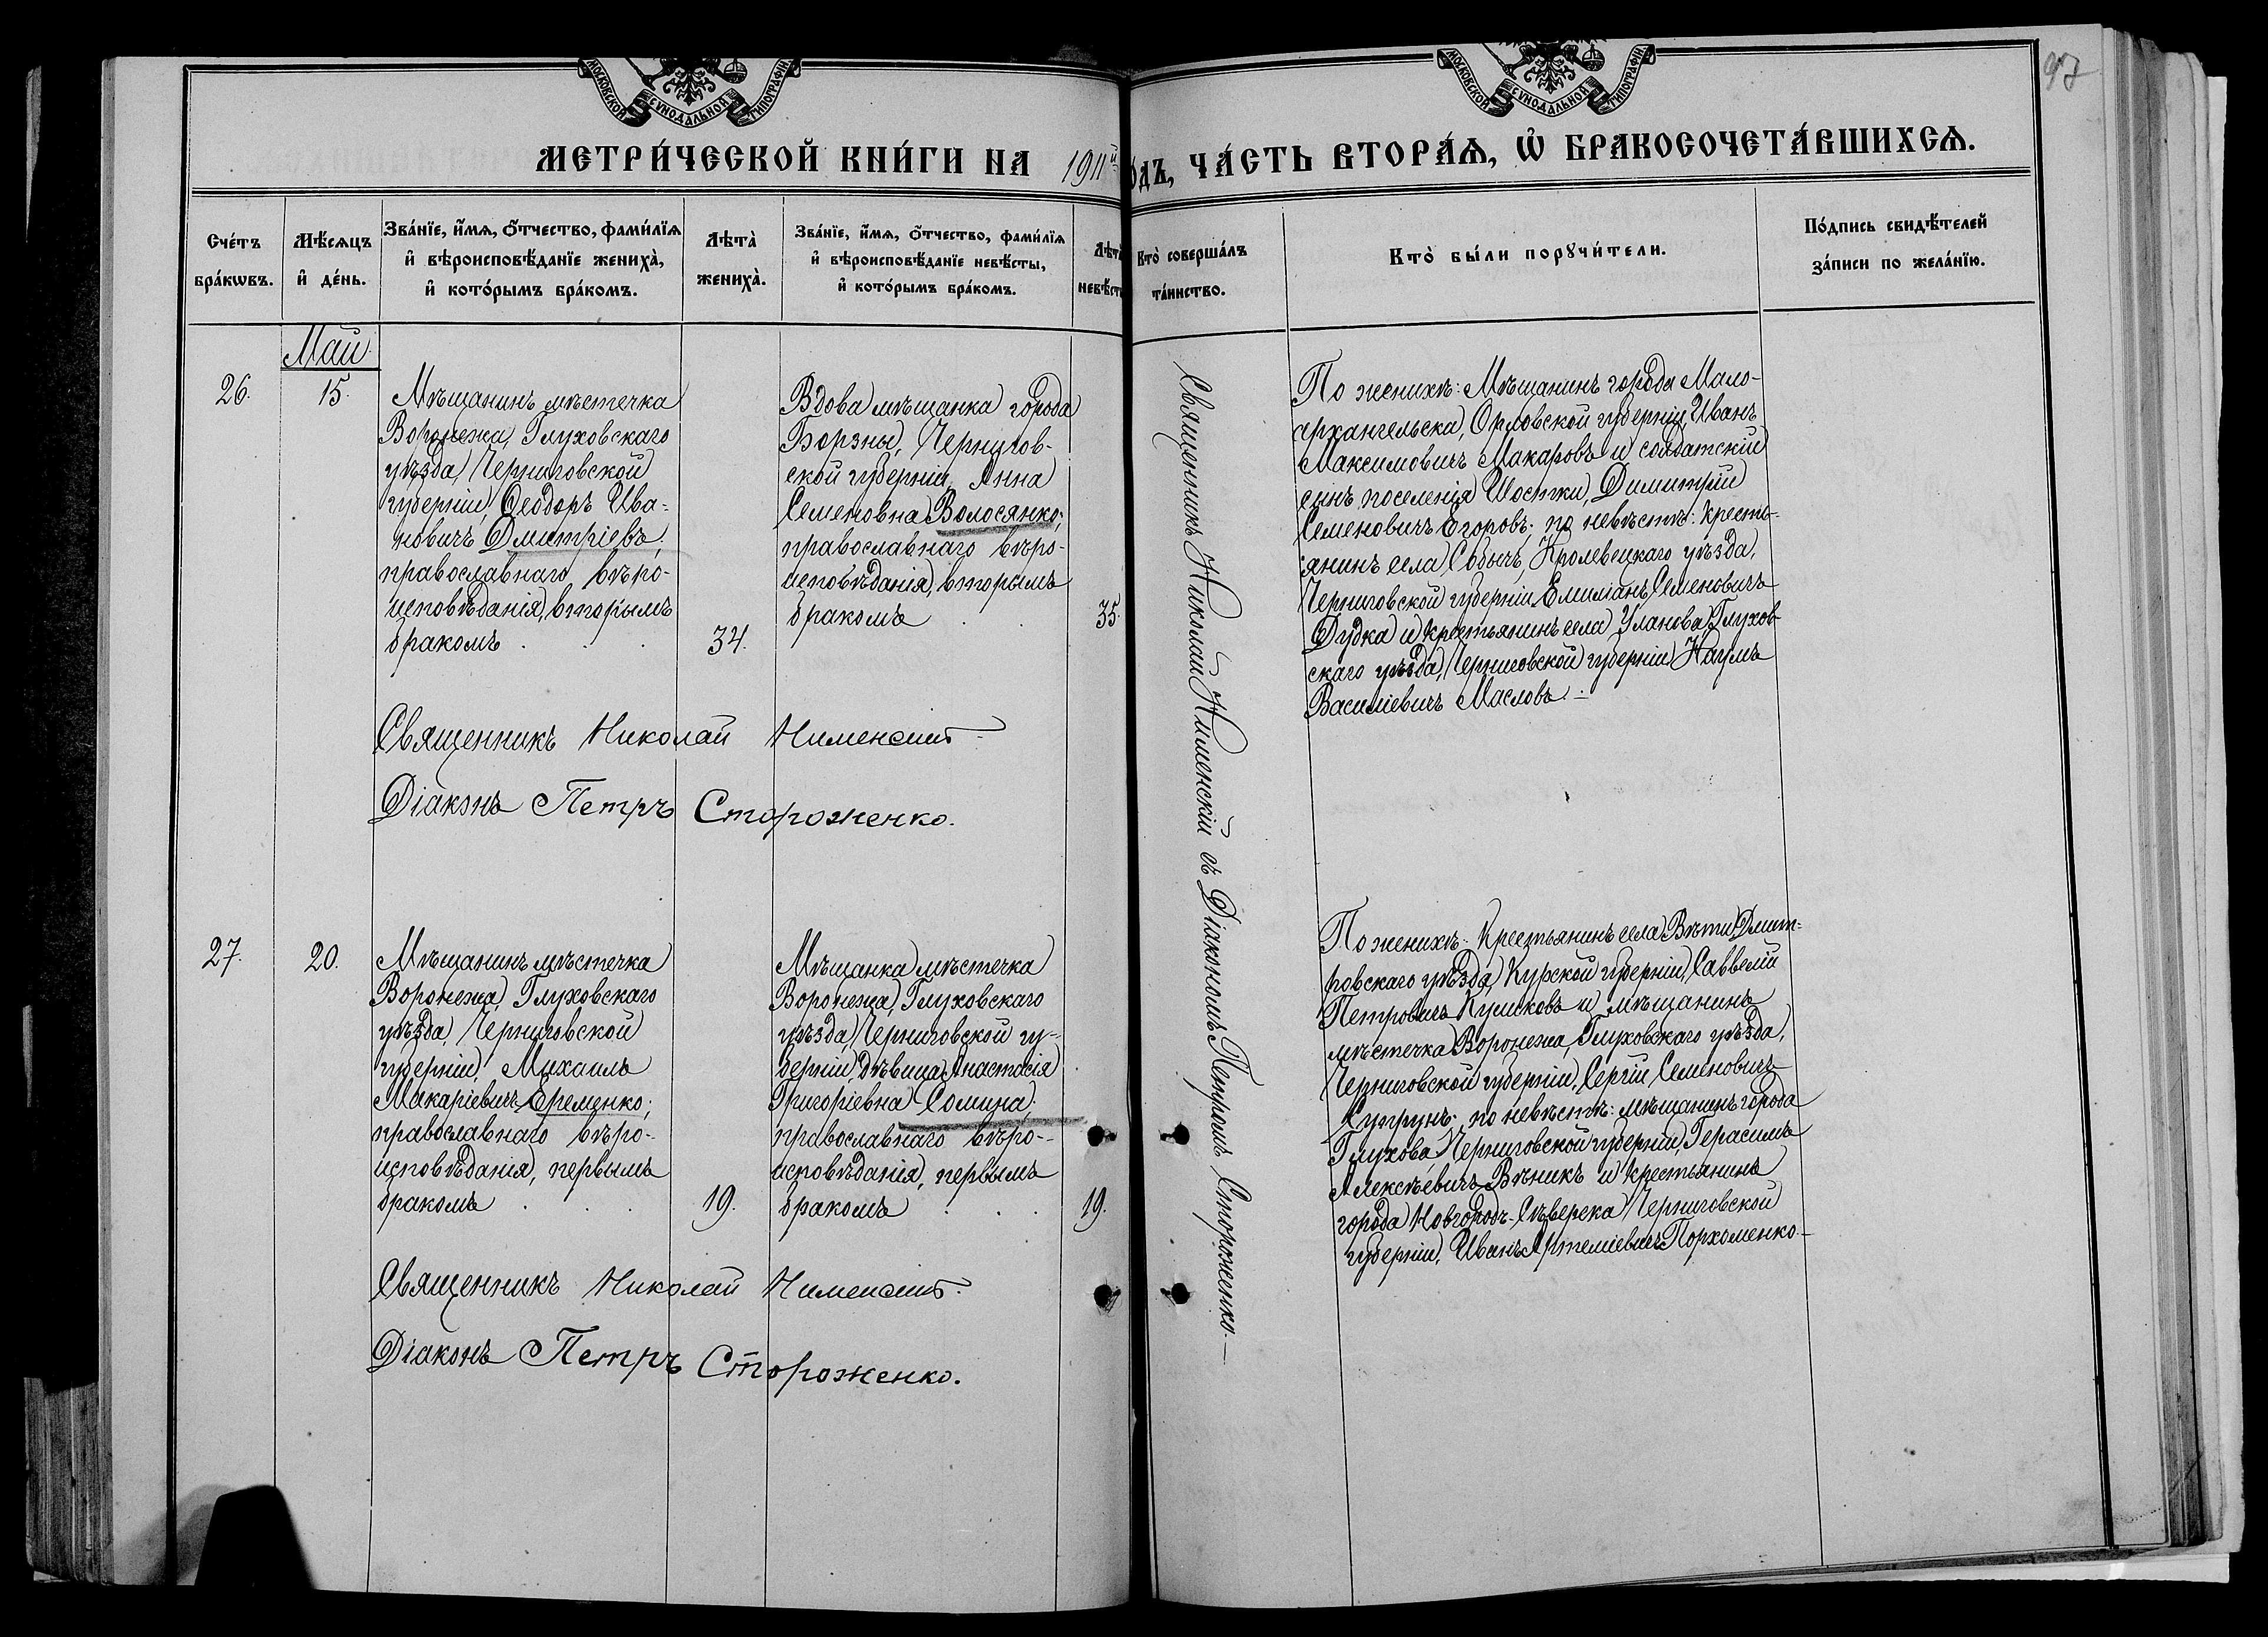 97
МОСКОВСКОЙ СУНОДАЛЬНОЙ ТИПОГРАФІИ
МОСКОВСКОЙ СУНОДАЛЬНОЙ ТИПОГРАФІИ
МЕТРИ́ЧЕСКОЙ КНИ́ГИ НА 1911й
О́ДЪ, ЧА́СТЬ ВТОРА́Ѧ, Ѡ БРАКОСОЧЕТА́ВШИХСѦ.
Сче́тъ
бра́кѡвъ.
Мѣ́сѧцъ
и҆ де́нь.
Зва́нїе, и҆́мѧ, ѻ҆́тчество, фами́лїѧ
и҆ вѣроисповѣ́данїе жениха̀,
и҆ кото́рымъ бра́комъ.
Лѣ́та̀
жениха̀.
Зва́нїе, и҆́мѧ, ѻ҆́тчество, фами́лїѧ
и҆ вѣроисповѣ́данїе невѣ́сты,
и҆ кото́рымъ бра́комъ.
Лѣ́та
невѣ́сты
Кто̀ соверша́лъ
та́инство.
Кто̀ бы́ли порꙋчи́тели.
По́дпись свидѣ́телей
за́писи по жела́нїю.
Май
26.
15.
Мѣщанинъ мѣстечка
Воронежа, Глуховскаго
уѣзда, Черниговской
губерніи, Ѳеодоръ Ива-
новичъ Дмитріевъ,
православнаго вѣро-
исповѣданія, вторымъ
бракомъ
34.
Вдова мѣщанка города
Борзны, Чернигов-
ской губерніи, Анна
Семеновна Волосянко;
православнаго вѣро-
исповѣданія, вторымъ
бракомъ
35.
Священникъ Николай Нименскій съ Діакономъ Петромъ Стороженко.—
По женихѣ: Мѣщанинъ города Мало-
архангельска, Орловской губерніи, Иванъ
Максимовичъ Макаровъ и солдатскій
сынъ поселенія Шостки, Димитрій
Семеновичъ Егоровъ; по невѣстѣ: Кресть-
янинъ села Собычъ, Кролевецкаго уѣзда,
Черниговской губерніи Емиліанъ Семеновичъ
Дудка и крестьянинъ села Уланова, Глухов-
скаго уѣзда, Черниговской губерніи Наумъ
Василіевичъ Масловъ.—
Священникъ Николай Нименскій
Діаконъ Петръ Стороженко.
27.
20.
Мѣщанинъ мѣстечка
Воронежа, Глуховскаго
уѣзда, Черниговской
губерніи, Михаилъ
Макаріевичъ Еременко;
православнаго вѣро-
исповѣданія, первымъ
бракомъ
19.
Мѣщанка мѣстечка
Воронежа, Глуховскаго
уѣзда, Черниговской гу-
берніи, дѣвица Анастасія
Григоріевна Сомина;
православнаго вѣро-
исповѣданія, первымъ
бракомъ
19.
По женихѣ: Крестьянинъ села Дмит-
ровскаго уѣзда, Курской губерніи, Савелій
Петровичъ Кушковъ и мѣщанинъ
мѣстечка Воронежа, Глуховскаго уѣзда,
Черниговской губерніи, Сергій Семеновичъ
Супрунъ; по невѣстѣ: мѣщанинъ города
Глухова, Черниговской губерніи, Герасимъ
Алексѣевичъ Вѣникъ и крестьянинъ
города Новгородъ-Сѣверска Черниговской
губерніи, Иванъ Артеміевичъ Порхоменко.—
Священникъ Николай Нименскій
Діаконъ Петръ Стороженко.